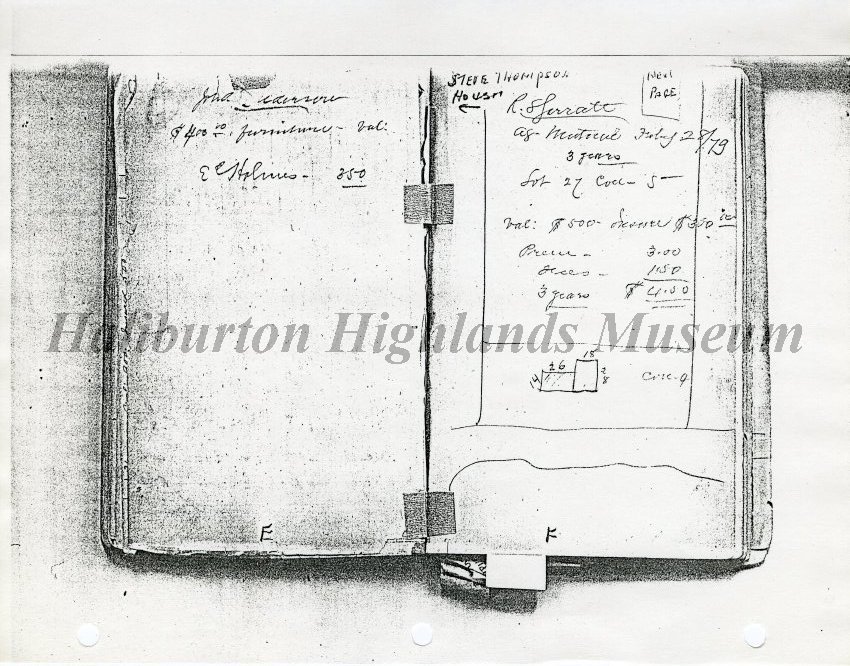 $400.00 furniture - val:
E C Holmes - 350
E
STEVE THOMPSON
HOUSE
NEXT
PAGE
R. S.
Ag- Mutual July 28/79
3 years
Lot 27 Con - 5 -
Val: $500 - Insure $350 00
Prem - 3.00
1.50
3 years $ 4.50
Haliburton Highlands Museum
18
26
14
28
Con - 9
F